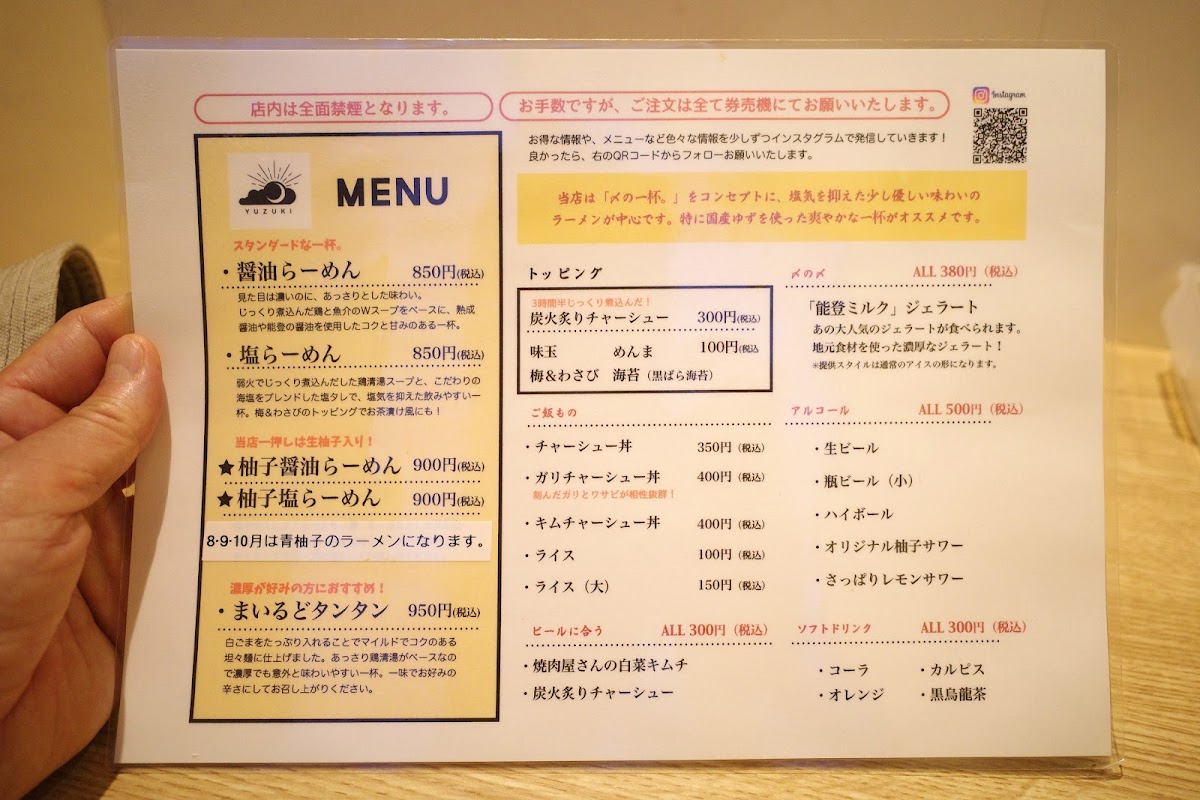 店内は全面禁煙となります。
お手数ですが、ご注文は全て券売機にてお願いいたします。
Instagram
お得な情報や、メニューなど色々な情報を少しずつインスタグラムで発信していきます！
良かったら、右のQRコードからフォローお願いいたします。
当店は「〆の一杯。」をコンセプトに、塩気を抑えた少し優しい味わいの
ラーメンが中心です。特に国産ゆずを使った爽やかな一杯がオススメです。
YUZUKI
MENU
スタンダードな一杯。
・醤油らーめん 850円(税込)
見た目は濃いのに、あっさりとした味わい。
じっくり煮込んだ鶏と魚介のWスープをベースに、熟成
醤油や能登の醤油を使用したコクと甘みのある一杯。
・塩らーめん 850円(税込)
弱火でじっくり煮込んだした鶏清湯スープと、こだわりの
海塩をブレンドした塩タレで、塩気を抑えた飲みやすい一
杯。梅＆わさびのトッピングでお茶漬け風にも！
当店一押しは生柚子入り！
★柚子醤油らーめん 900円(税込)
★柚子塩らーめん 900円(税込)
8·9·10月は青柚子のラーメンになります。
濃厚が好みの方におすすめ！
・まいるどタンタン 950円(税込)
白ごまをたっぷり入れることでマイルドでコクのある
坦々麺に仕上げました。あっさり鶏清湯がベースなの
で濃厚でも意外と味わいやすい一杯。一味でお好みの
辛さにしてお召し上がりください。
トッピング
3時間半じっくり煮込んだ！
炭火炙りチャーシュー 300円(税込)
味玉 めんま 100円(税込
梅＆わさび 海苔（黒ばら海苔）
ご飯もの
・チャーシュー丼 350円（税込）
・ガリチャーシュー丼 400円（税込）
刻んだガリとワサビが相性抜群！
・キムチャーシュー丼 400円（税込）
・ライス 100円（税込）
・ライス（大） 150円（税込）
ビールに合う ALL 300円（税込）
・焼肉屋さんの白菜キムチ
・炭火炙りチャーシュー
〆の〆 ALL 380円（税込）
「能登ミルク」ジェラート
あの大人気のジェラートが食べられます。
地元食材を使った濃厚なジェラート！
※提供スタイルは通常のアイスの形になります。
アルコール ALL 500円（税込）
・生ビール
・瓶ビール（小）
・ハイボール
・オリジナル柚子サワー
・さっぱりレモンサワー
ソフトドリンク ALL 300円（税込）
・コーラ ・カルピス
・オレンジ ・黒烏龍茶